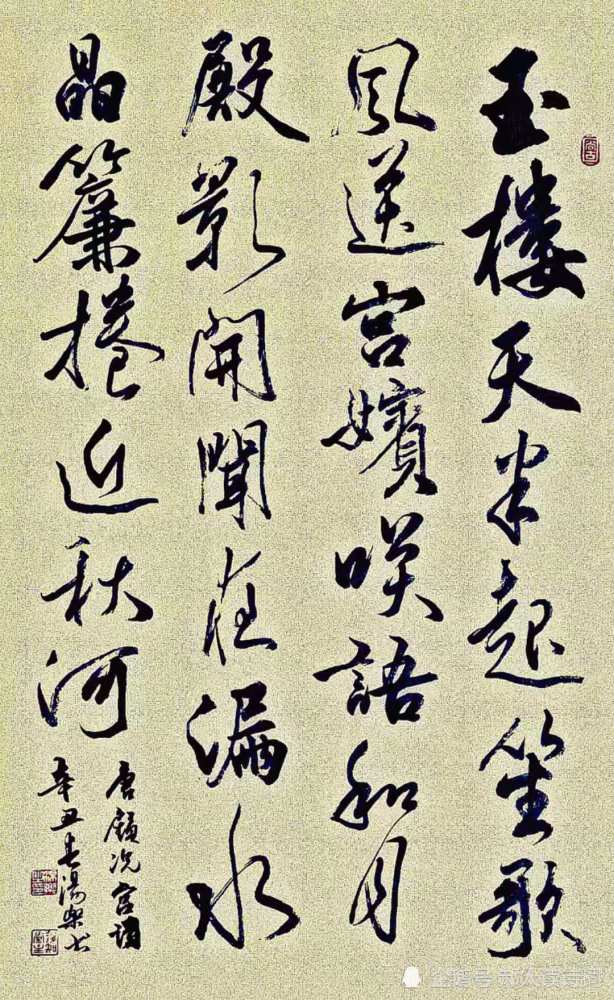 玉樓天半起笙歌
風送宮嬪咲語和月
殿影開聞夜漏水
晶簾捲近秋河
唐顧況宮詞
辛丑春湯
企鹅号